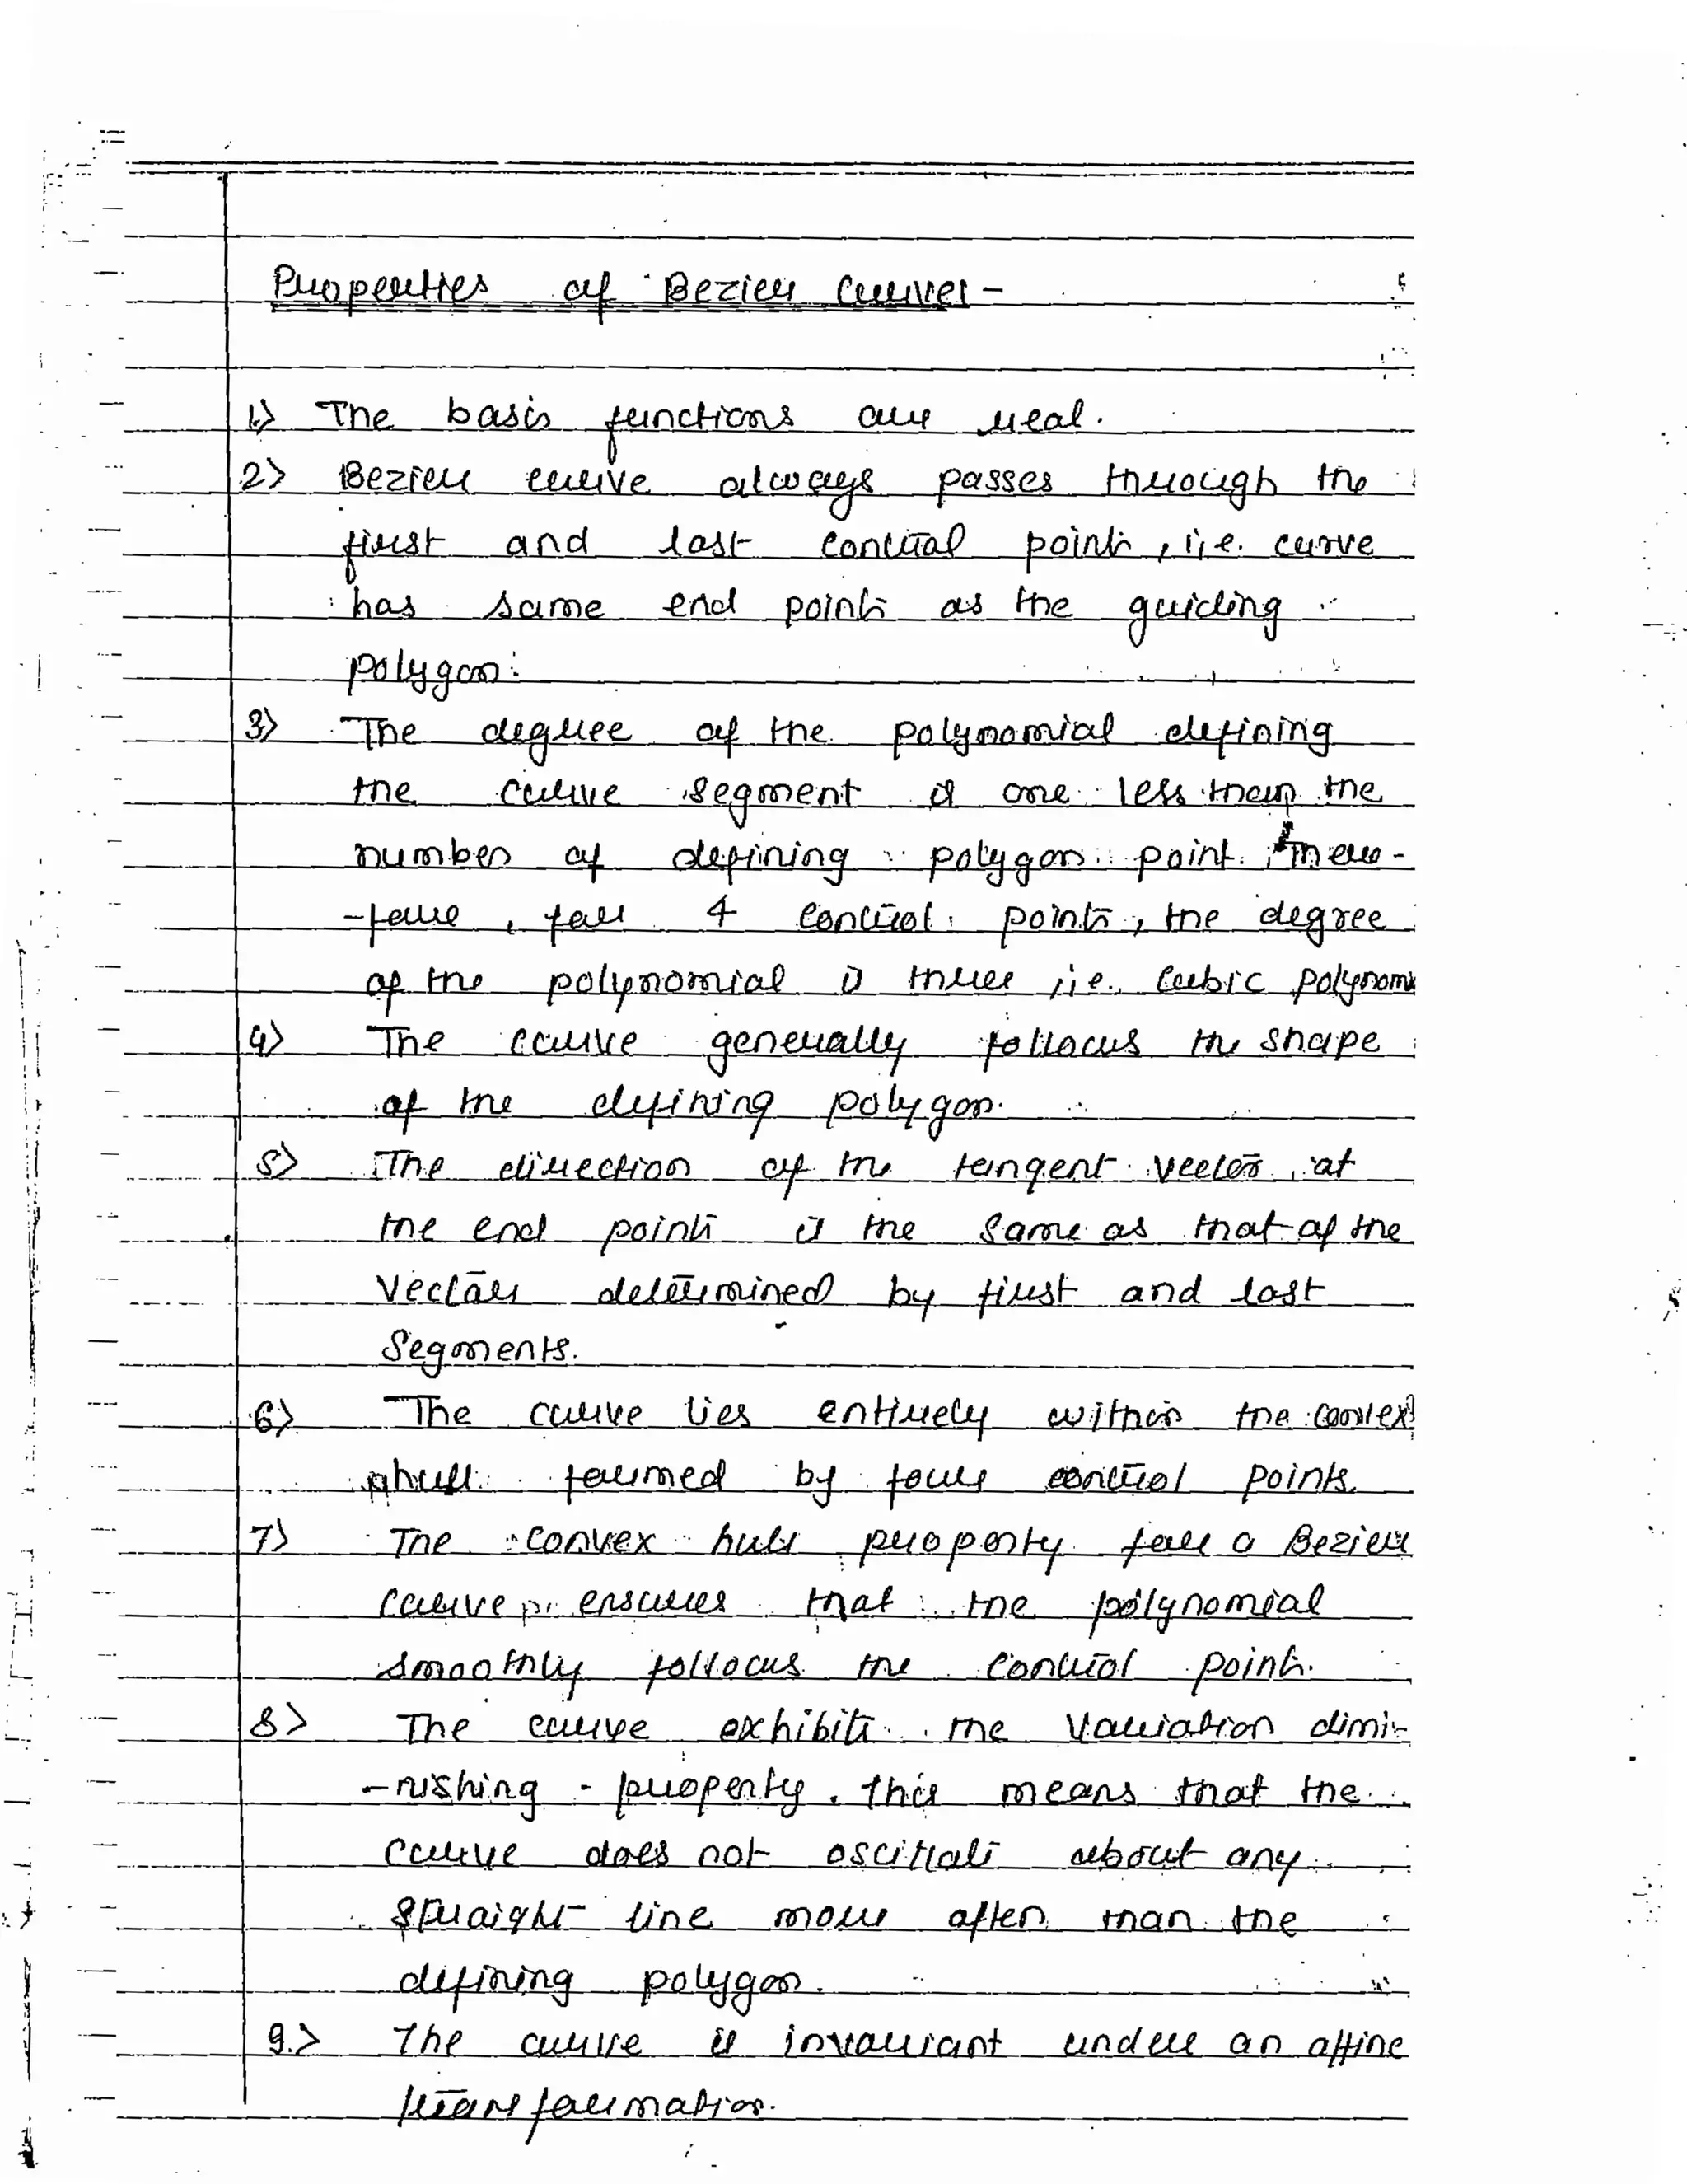 Properties of Bezier Curves -
1) The basis functions are real.
2) Bezier curve always passes through the
first and last control points, i.e. curve
has same end points as the guiding
polygon.
3) The degree of the polynomial defining
the curve segment is one less than the
number of defining polygon point. There-
-fore, for 4 control points, the degree
of the polynomial is three, i.e. Cubic polynomi
4) The curve generally follows the shape
of the defining polygon.
5) The direction of the tangent vector at
the end points is the same as that of the
vectors determined by first and last
Segments.
6) The curve lies entirely within the convex
hull formed by four control points.
7) The convex hull property for a Bezier
curve ensures that the polynomial
smoothly follows the control points.
8) The curve exhibits the variation dimi-
-nishing - property. this means that the
curve does not oscillate about any
straight line more often than the
defining polygon.
9.) The curve is invariant under an affine
transformation.